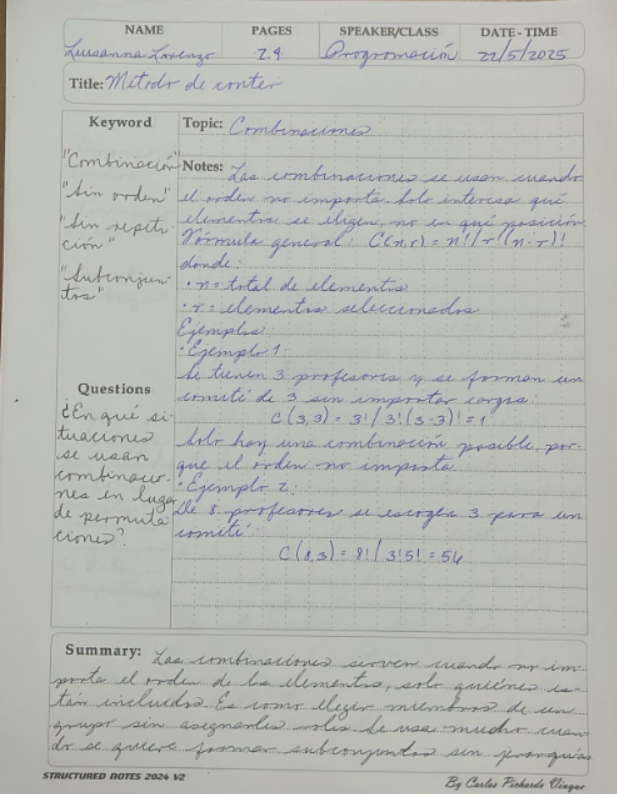 NAME PAGES SPEAKER/CLASS DATE - TIME
Luisanna Lorenzo 2.4 Programación 22/5/2025
Title: Método de conteo
Keyword
"Combinación"
"Sin orden"
"Sin repeti-
ción"
"Subconjun-
tos"
Questions
¿En qué si-
tuaciones
se usan
combinacio-
nes en lugar
de permuta
ciones?
Topic: Combinaciones
Notes: Las combinaciones se usan cuando
el orden no importa. Solo interesa qué
elementos se eligen, no en qué posición
Fórmula general: C(n,r) = n!/r!(n-r)!
donde:
• n = total de elementos
• r = elementos seleccionados
Ejemplos:
• Ejemplo 1:
Se tienen 3 profesores y se forman un
comité de 3 sin importar cargos:
C(3,3) = 3!/3!(3-3)! = 1
Solo hay una combinación posible, por-
que el orden no importa.
• Ejemplo 2:
De 8 profesores se escogen 3 para un
comité:
C(8,3) = 8!/3!5! = 56
Summary: Las combinaciones sirven cuando no im-
porta el orden de los elementos, solo quiénes es-
tán incluidos. Es como elegir miembros de un
grupo sin asignarles roles. Se usa mucho cuan-
do se quiere formar subconjuntos sin jerarquías
STRUCTURED NOTES 2024 V2
By Carlos Pichardo Vinque